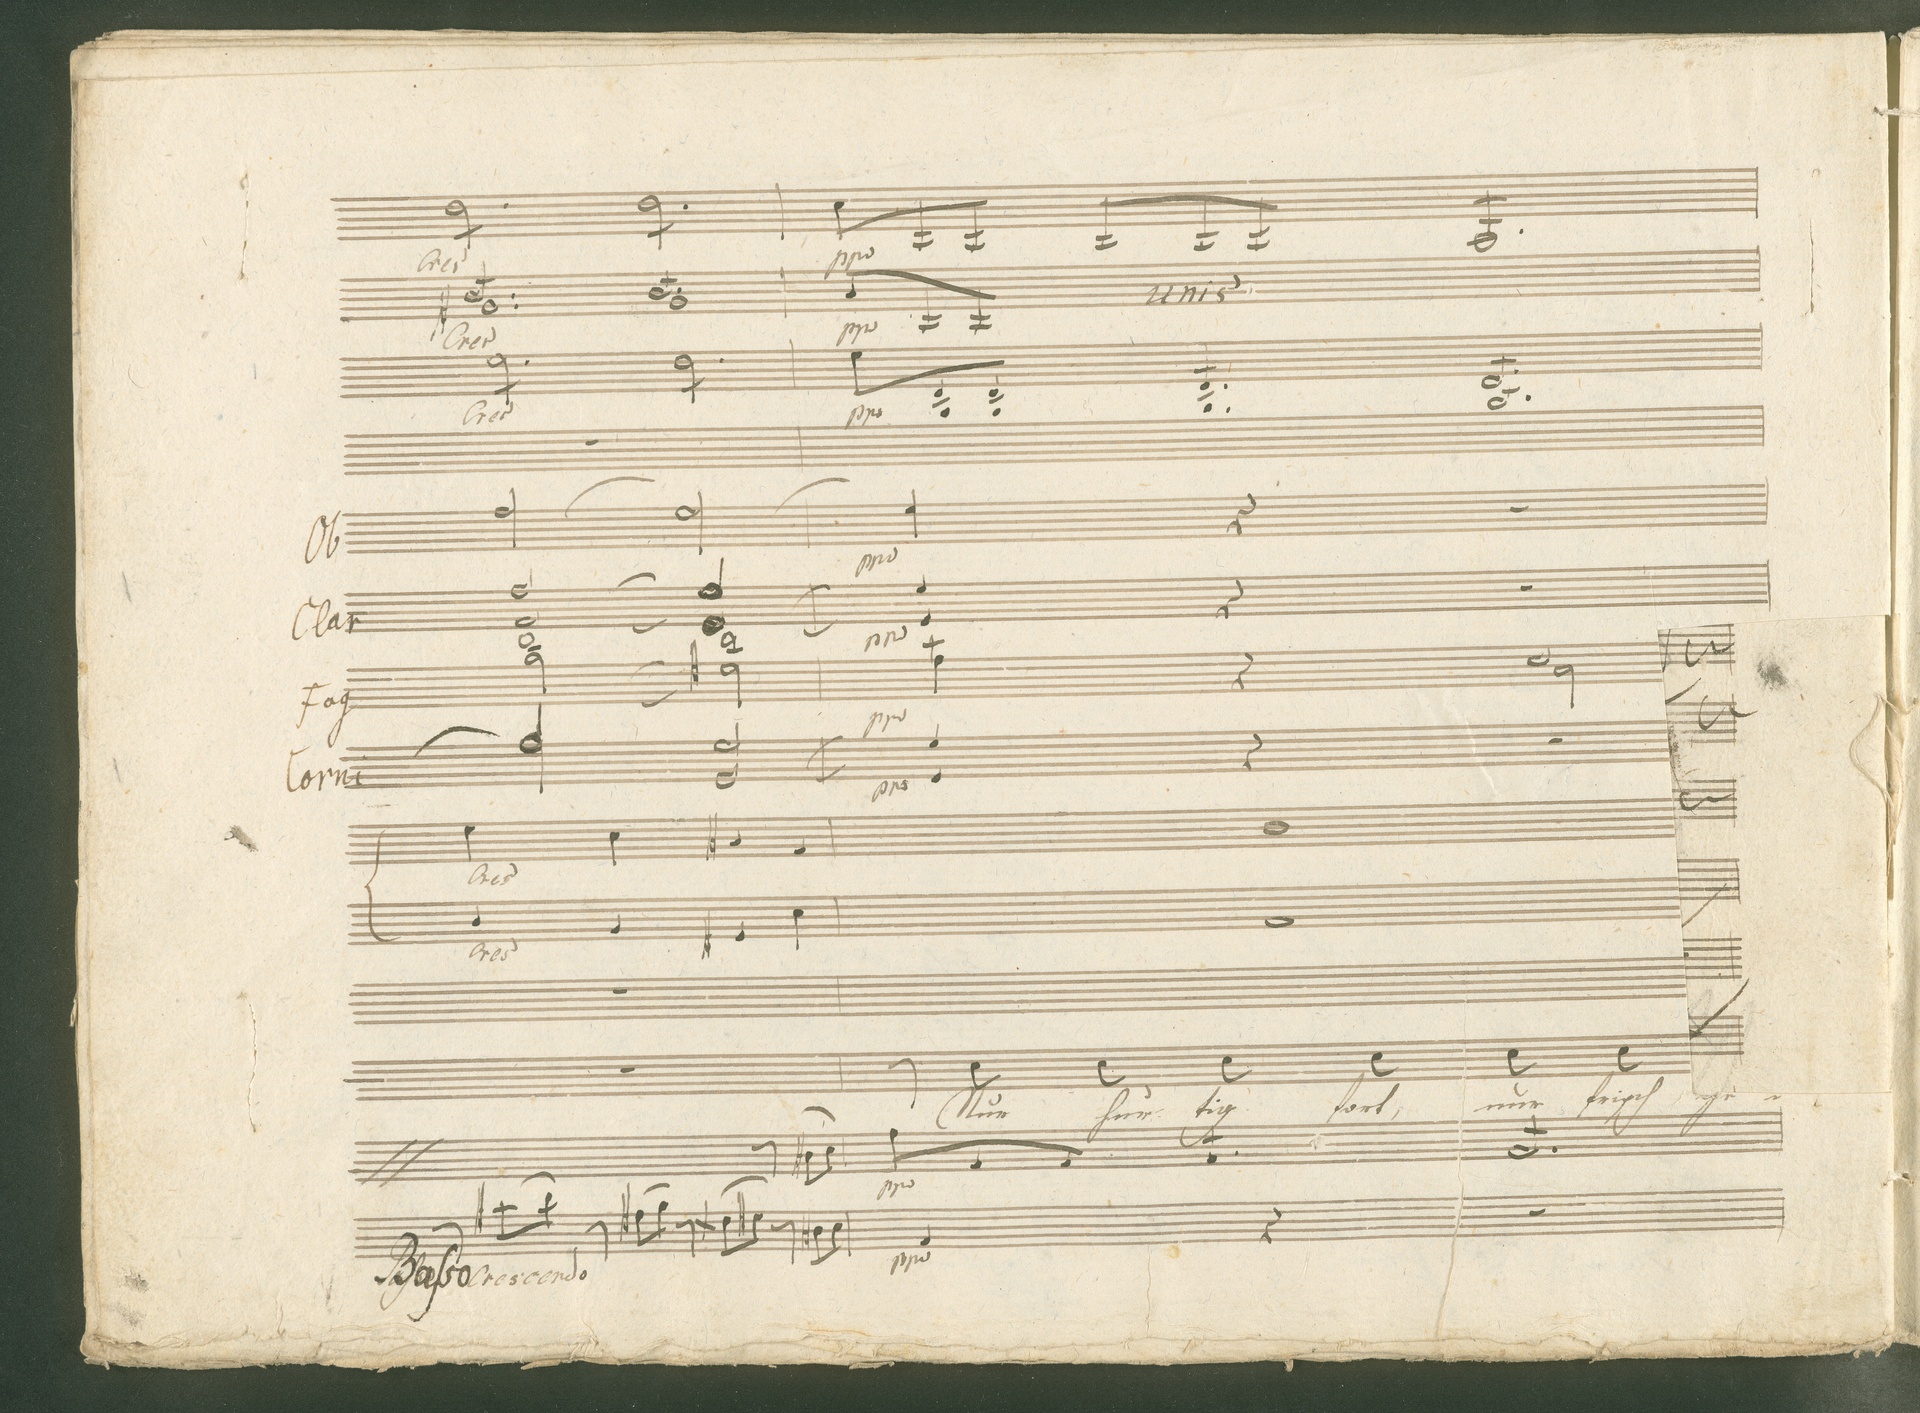 Cres ppo
Cres ppo unis
Cres ppo
Ob ppo
Clar ppo
Fag ppo
Corni ppo
Cres
Cres
Nur hur- tig fort, nur frisch ge-
ppo
Basso Crescendo ppo